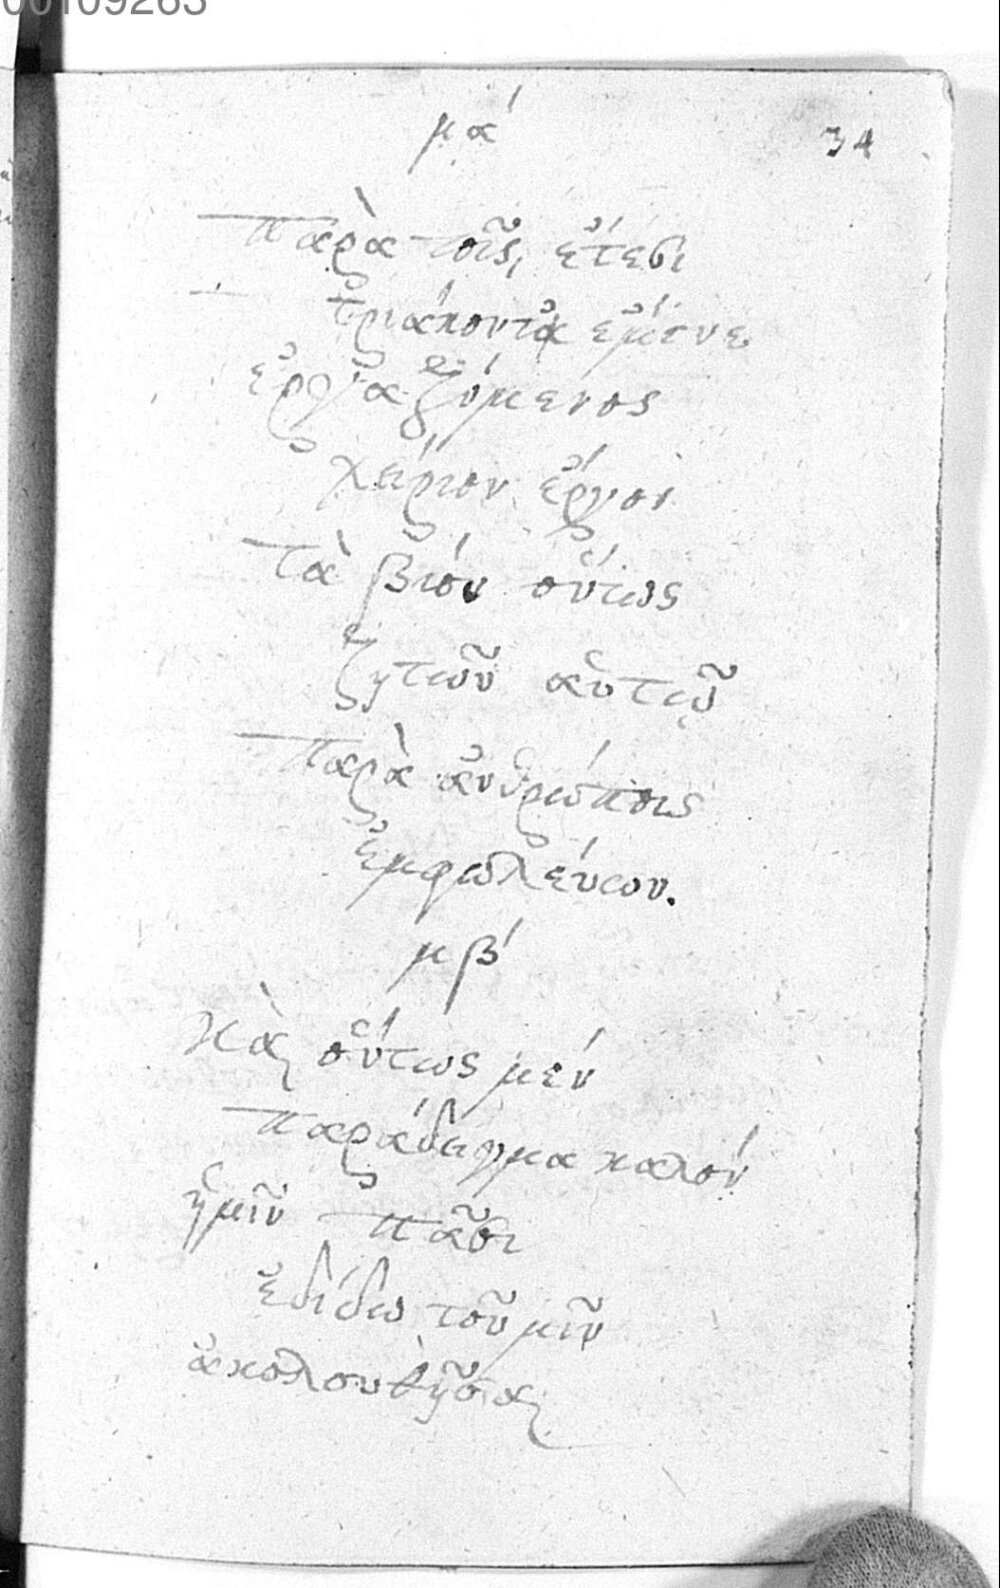 00109263
μα΄
34
παρὰ τοῖς, ἔτεσι
τριάκοντα ἔμεινε
ἐργαζόμενος
χείριον ἔργον
τὰ βίον οὕτως
ζητῶν αὑτῷ
παρὰ ἀνθρώποις
ἐμφωλεύων.
μβ΄
καὶ οὕτως μέν
παράδειγμα καλόν
ἡμῖν πᾶσι
ἐδίδω τοῦ μῖν
ἀκολουθῆσαι